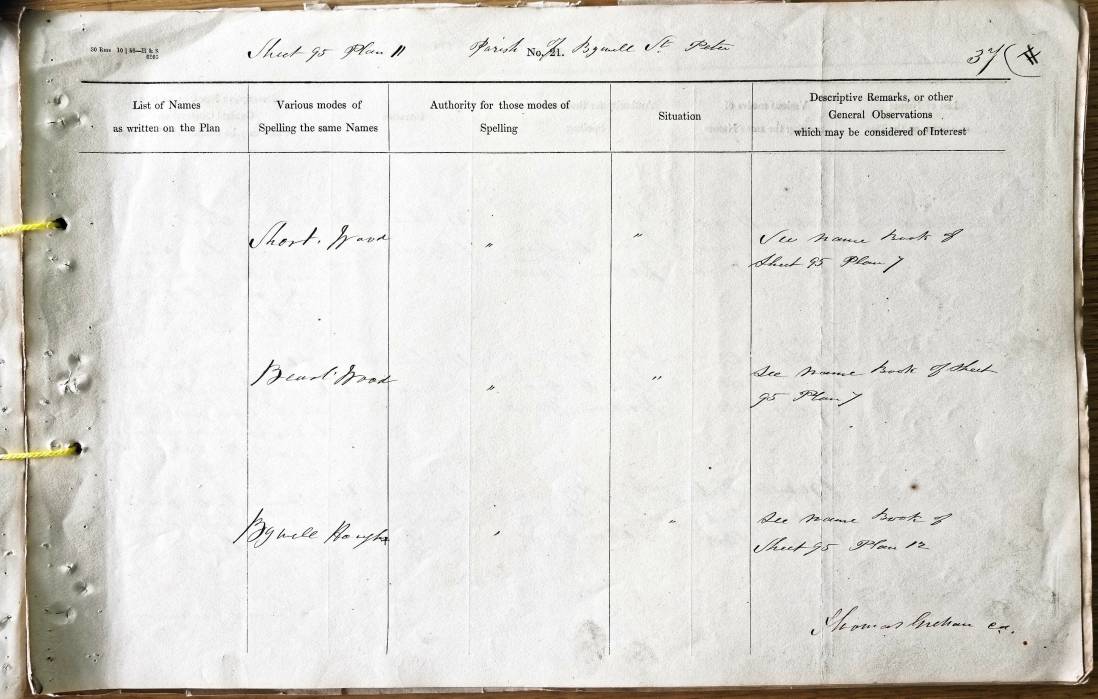 30 Rms 10 | 56—H & S
6263
Sheet 95 Plan 11 Parish No. 21. of Bywell St. Peter 37
List of Names
as written on the Plan
Various modes of
Spelling the same Names
Authority for those modes of
Spelling
Situation
Descriptive Remarks, or other
General Observations
which may be considered of Interest
Short Wood " " See name Book of
Sheet 95 Plan 7
Wood " " See name Book of Sheet
95 Plan 7
Bywell " " See name Book of
Sheet 95 Plan 12
Thomas ca.